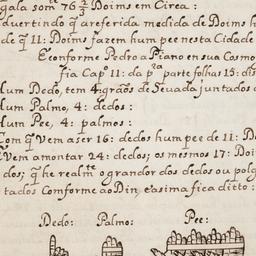 gala som^te 76 3/4 Doims em Cirea:
dvertindo q̃ a referida medida de Doims h
de q̃ 11: Doims fazem hum pee nesta Cidade
E conforme Pedro a Piano en sua Cosmo
fia Cap^o 11: da p^ra parte folhas 15: dis
lum Dedo, tem 4 grãos de Sevada juntados
lum Palmo, 4: dedos:
lum Pee, 4: palmos:
Com q̃ Vem a ser 16: dedos hum pee de 11: Do
q̃ Vem amontar 24: dedos; os mesmos 17: Doi
dos; q̃ he realm^te o grandor dos dedos ou polg
tados Comforme ao Din, e asima fica ditto:
Dedo: Palmo: Pee: